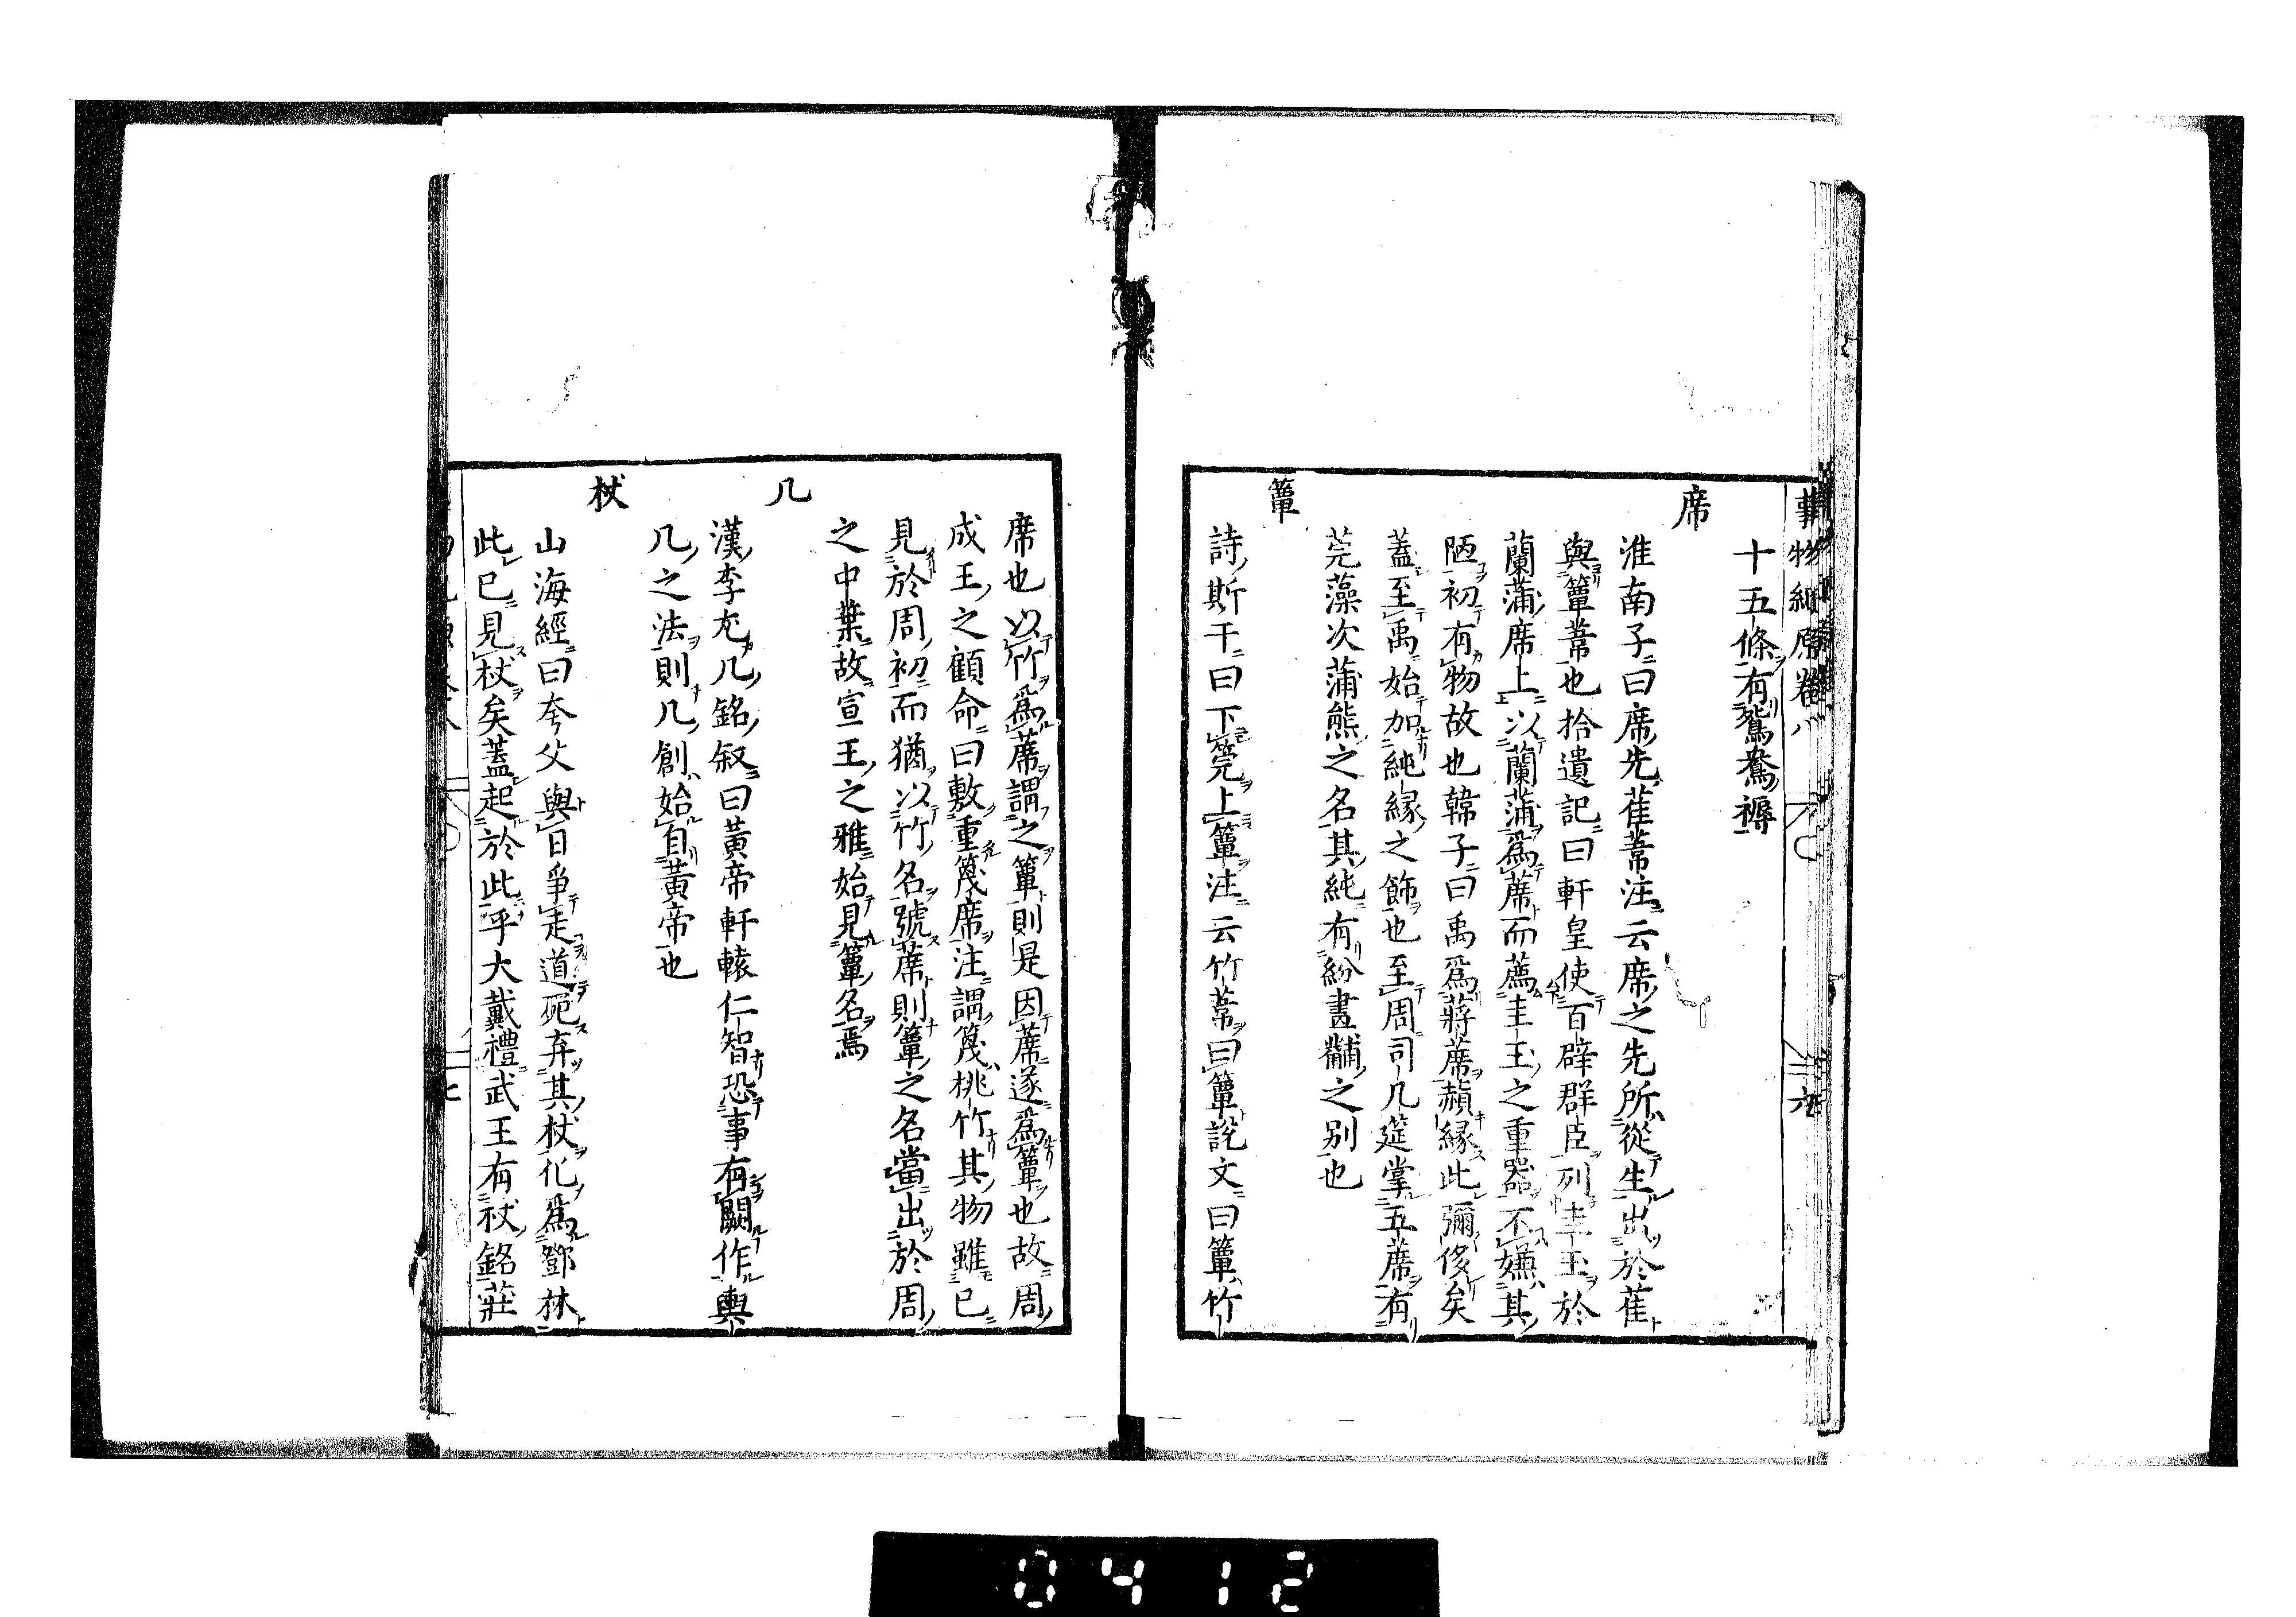 事物紀原卷八
六
十五條有鴛鴦褥
席
淮南子曰席先萑葦注云席之先所從生出於萑
與簟葦也拾遺記曰軒皇使百辟群臣列圭玉於
蘭蒲席上以蘭蒲爲蓆而薦圭玉之重器不嫌其
陋初有物故也韓子曰禹爲蔣蓆頳緣此彌侈矣
蓋至禹始加純緣之飾也至周司几筵掌五蓆有
莞藻次蒲熊之名其純有紛畫黼之别也
簟
詩斯干曰下莞上簟注云竹葦曰簟說文曰簟竹
席也以竹爲蓆謂之簟則是因蓆遂爲簟也故周
成王之顧命曰敷重篾席注謂篾桃竹其物雖已
見於周初而猶以竹名號蓆則簟之名當出於周
之中葉故宣王之雅始見簟名焉
几
漢李尤几銘叙曰黃帝軒轅仁智恐事有闕作輿
几之法則几創始自黃帝也
杖
山海經曰夸父與日爭走道死弃其杖化爲鄧林
此已見杖矣蓋起於此乎大戴禮武王有杖銘莊
七
0412